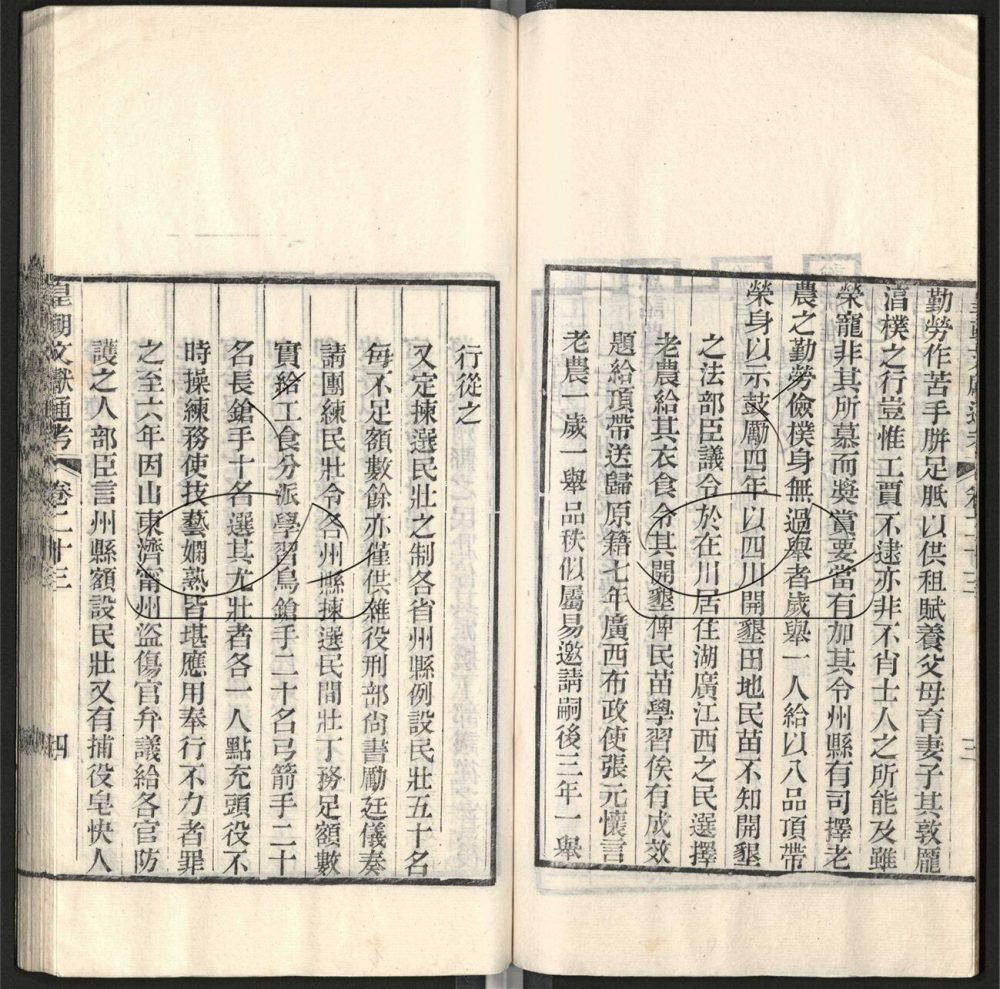 勤勞作苦手胼足胝以供租賦養父母育妻子其敦龐
淳樸之行豈惟工賈不逮亦非不肖士人之所能及雖
榮寵非其所慕而奬賞要當有加其令州縣有司擇老
農之勤勞儉樸身無過舉者歲舉一人給以八品頂帶
榮身以示鼓勵四年以四川開墾田地民苗不知開墾
之法部臣議令於在川居住湖廣江西之民選擇
老農給其衣食令其開墾俾民苗學習俟有成效
題給頂帶送歸原籍七年廣西布政使張元懷言
老農一歲一舉品秩似屬易邀請嗣後三年一舉
行從之
又定揀選民壯之制各省州縣例設民壯五十名
每不足額數餘亦僅供雜役刑部尙書勵廷儀奏
請團練民壯令各州縣揀選民間壯丁務足額數
實給工食分派學習鳥鎗手二十名弓箭手二十
名長鎗手十名選其尤壯者各一人點充頭役不
時操練務使技藝嫺熟皆堪應用奉行不力者罪
之至六年因山東濟甯州盜傷官弁議給各官防
護之人部臣言州縣額設民壯又有捕役皂快人
皇朝文獻通考 卷二十三 四